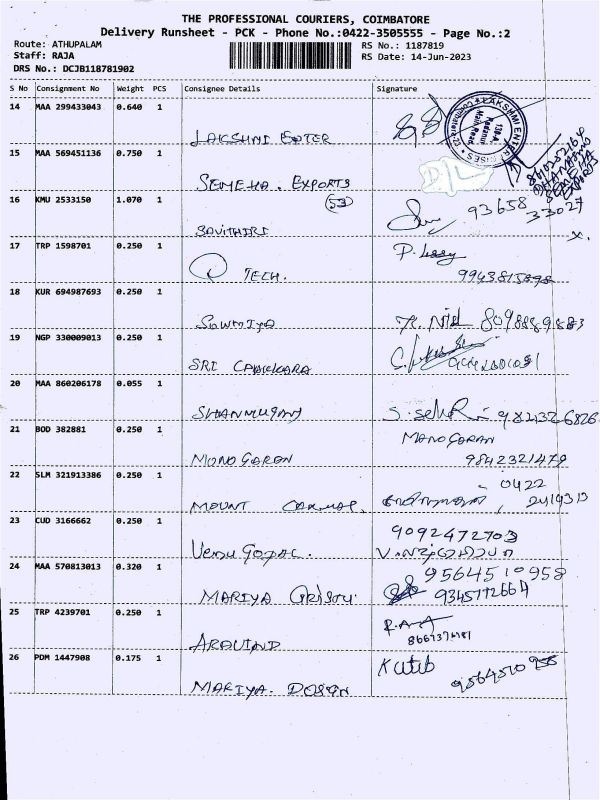 THE PROFESSIONAL COURIERS, COIMBATORE
Delivery Runsheet - PCK - Phone No.:0422-3505555 - Page No.:2
Route: ATHUPALAM
RS No.: 1187819
Staff: RAJA
RS Date: 14-Jun-2023
DRS No.: DCJB118781902
S No Consignment No Weight PCS Consignee Details Signature
14 MAA 299433043 0.640 1
LAKSHMI ENTER
15 MAA 569451136 0.750 1
SEMEHA. EXPORTS
16 KMU 2533150 1.070 1
(53)
SAVITHIRI 93658 33027
17 TRP 1598701 0.250 1
Q TECH.
18 KUR 694987693 0.250 1
SOWMIYA 8098889883
19 NGP 330009013 0.250 1
SRI
20 MAA 860206178 0.055 1
SHANMUGAM
21 BOD 382881 0.250 1
MANOGARAN
MONOGARAN 9842321479
22 SLM 321913386 0.250 1
0422
MOUNT
23 CUD 3166662 0.250 1
9092472703
VENU GOPAL.
24 MAA 570813013 0.320 1
9564510958
MARIYA 9345772664
25 TRP 4239701 0.250 1
ARAVIND
26 PDM 1447908 0.175 1
MARIYA. DESIGN